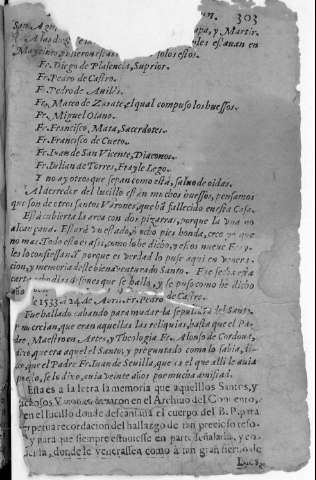 303
San
Papa, y Martir.
A la
estauan en
May
estos.
Fr. Diego de Plasencia, Suprior.
Fr. Pedro de Castro.
Fr. Pedro de Auilés.
Fr. Mateo de Zarate, el qual compuso los huessos.
Fr. Miguel Otano.
Fr. Francisco, Mata, Sacerdotes.
Fr. Francisco de Cueto.
Fr. Iuan de San Vicente, Diaconos.
Fr. Iulian de Torres, Frayle Lego.
Y no ay otros que sepan como està, saluo de oidas.
Al derredor del lucillo estàn muchos huessos, pensamos
que son de otros santos Varones, que ha fallecido en esta Casa.
Està cubierta la arca con dos pizarras, porque la vna no
alcançaua. Estarà vn estado, ò ocho pies honda, creo ya que
no mas. Todo esto es assi, como lo he dicho, y estos nueue Fray-
les lo confiessan. Y porque es verdad lo puse aqui en venera-
cion, y memoria deste bienauenturado Santo.
donde se hallo, y se puso como he dicho
de 1533. a 24. de Abril. Fr. Pedro de Castro.
Fue hallado cabando para mudar la sepultura del Santo,
y no creían, que eran aquellas las reliquias, hasta que el Pa-
dre, Maestro en Artes, y Theologia Fr. Alonso de Cordoua,
dixo, que era aquel el Santo, y preguntado como lo sabia, di-
xo, que el Padre Fr. Iuan de Seuilla, que es el que alli le auia
puesto, se lo dixo, auia veinte años por mucha amistad.
Esta es a la letra la memoria que aquellos Santos, y
Varones dexaron en el Archiuo del Conuento,
en el lucillo donde descansaua el cuerpo del B. P. para
perpetua recordacion del hallazgo de tan precioso teso-
y para que siempre estuuiesse en parte señalada, y co-
donde le venerassen como à tan gran sieruo de